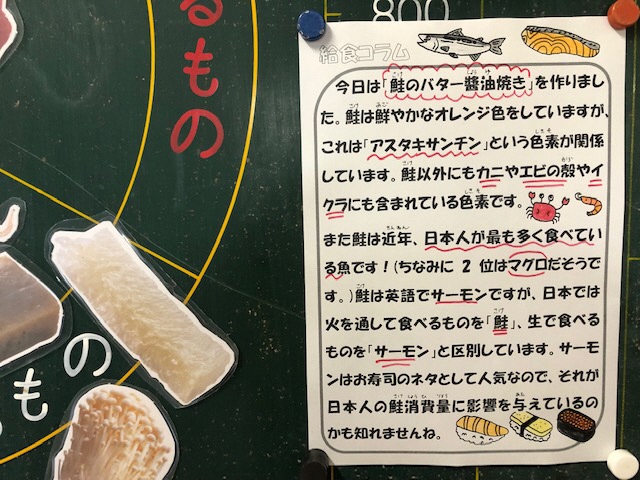 るもの
800
給食コラム
今日は「鮭のバター醬油焼き」を作りまし
た。鮭は鮮やかなオレンジ色をしていますが、
これは「アスタキサンチン」という色素が関係
しています。鮭以外にもカニやエビの殻やイ
クラにも含まれている色素です。
また鮭は近年、日本人が最も多く食べてい
る魚です！(ちなみに 2 位はマグロだそうで
す。)鮭は英語でサーモンですが、日本では
火を通して食べるものを「鮭」、生で食べる
ものを「サーモン」と区別しています。サーモ
ンはお寿司のネタとして人気なので、それが
日本人の鮭消費量に影響を与えているの
かも知れませんね。
もの